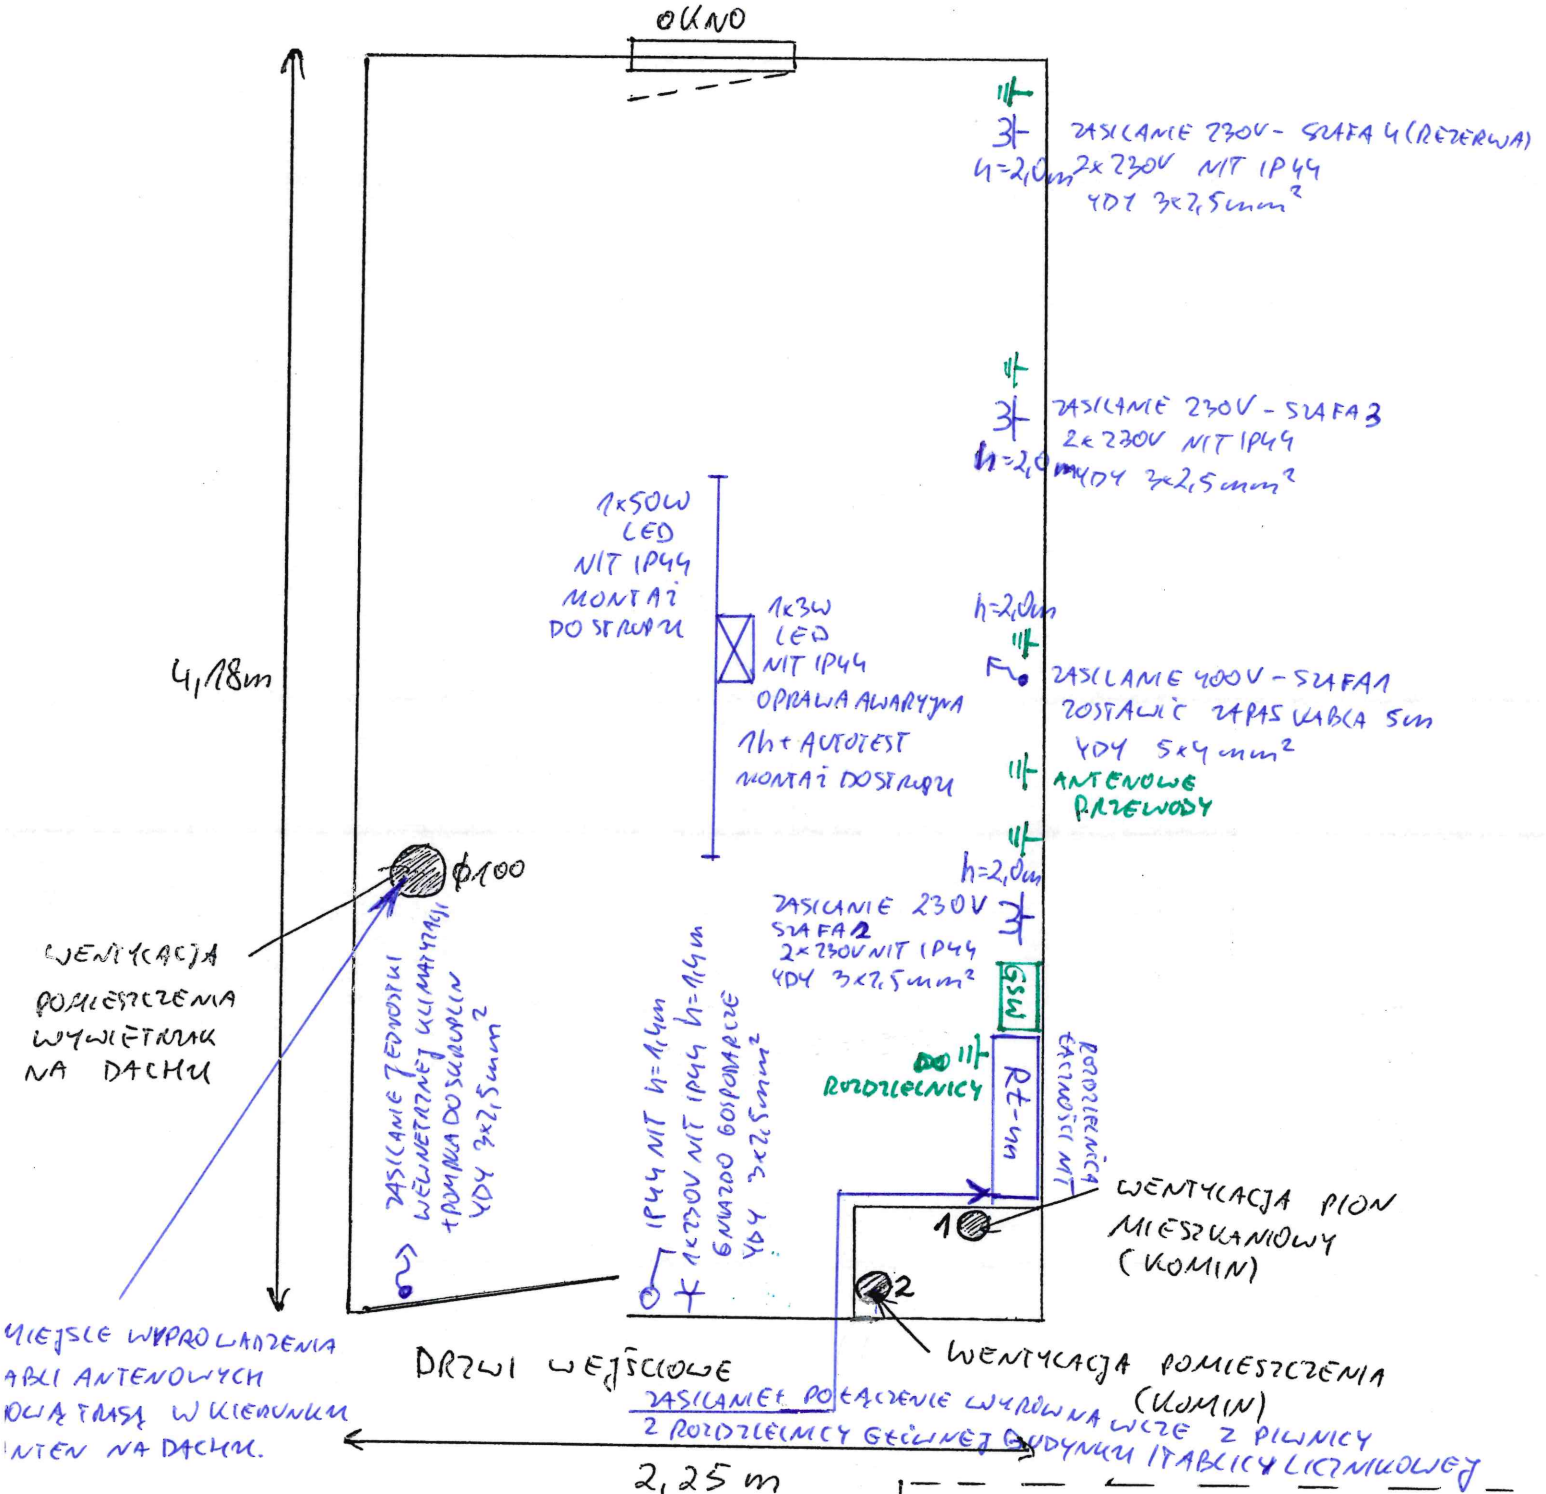 OKNO
ZASILANIE 230V - SZAFA 4 (REZERWA)
h=2,0m 2x230V N/T IP44
YDY 3x2,5mm²
ZASILANIE 230V - SZAFA 3
2x230V N/T IP44
h=2,0m YDY 3x2,5mm²
1x50W
LED
N/T IP44
MONTAŻ
DO STROPU
1x3W
LED
N/T IP44
OPRAWA AWARYJNA
1h + AUTOTEST
MONTAŻ DO STROPU
h=2,0m
ZASILANIE 400V - SZAFA 1
ZOSTAWIĆ ZAPAS KABLA 5m
YDY 5x4mm²
ANTENOWE
PRZEWODY
4,18m
φ100
h=2,0m
ZASILANIE 230V
SZAFA 2
2x230V N/T IP44
YDY 3x2,5mm²
GSW
WENTYLACJA
POMIESZCZENIA
WYWIETRZAK
NA DACHU
ZASILANIE JEDNOSTKI
WEWNĘTRZNEJ KLIMATYZACJI
+ POMPKA DO SKROPLIN
YDY 3x2,5mm²
IP44 N/T h=1,4m
1x230V N/T IP44 h=1,4m
GNIAZDO GOSPODARCZE
YDY 3x2,5mm²
ROZDZIELNICY
RŁ-nn
ROZDZIELNICA
ŁĄCZNOŚCI MT
1
WENTYLACJA PION
MIESZKANIOWY
(KOMIN)
2
WENTYLACJA POMIESZCZENIA
(KOMIN)
MIEJSCE WYPROWADZENIA
ABLI ANTENOWYCH
OWĄ TRASĄ W KIERUNKU
NTEN NA DACHU.
DRZWI WEJŚCIOWE
ZASILANIE + POŁĄCZENIE WYRÓWNAWCZE Z PIWNICY
Z ROZDZIELNICY GŁÓWNEJ BUDYNKU I TABLICY LICZNIKOWEJ
2,25 m